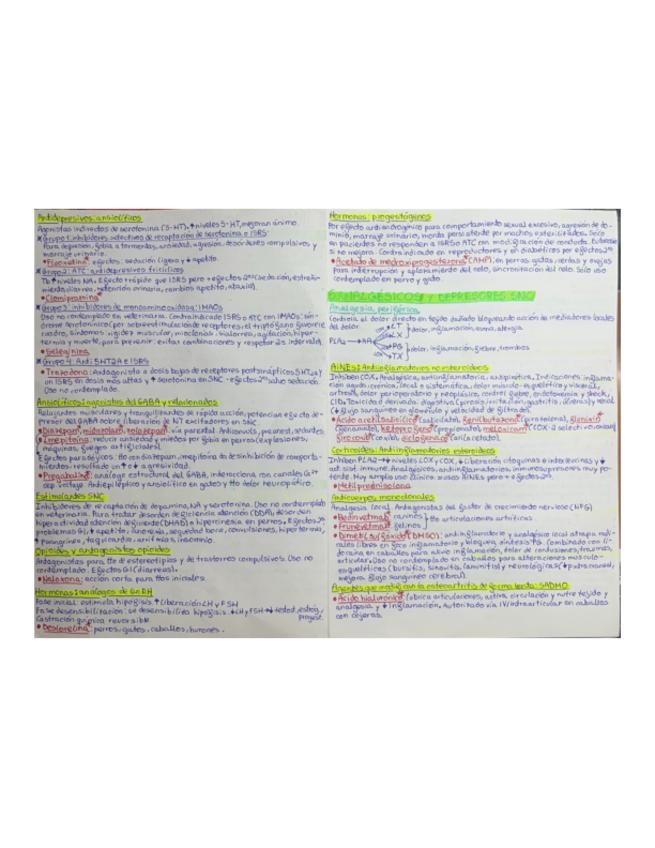 Antidepresivos: ansiolíticos
Agonistas indirectos de serotonina (5-HT). ↑niveles 5-HT, mejoran ánimo.
* Grupo 1: inhibidores selectivos de recaptación de serotonina o ISRS
Para depresión, fobia a tormentas, ansiedad, agresión, desórdenes compulsivos y
marcaje urinario.
• Fluoxetina: efectos: sedación ligera y ↓apetito.
* Grupo 2: ATC: antidepresivos tricíclicos
Tb ↑niveles NA. Efecto + rápido que ISRS pero + efectos 2os (sedación, estreñi-
miento, diarrea, retención urinaria, cambios apetito, ataxia).
• Clomipramina
* Grupo 3: inhibidores de monoamino oxidasa: IMAOs
Uso no contemplado en veterinaria. Contraindicado ISRS o ATC con IMAOs: sín-
drome serotonínico (por sobreestimulación de receptores, el triptófano favorece
cuadro, síntomas: rigidez muscular, mioclonías, sialorrea, agitación, hiper-
termia y muerte, para prevenir: evitar combinaciones y respetar 2s intervalo).
• Selegilina
* Grupo 4: Anti 5HT2A e ISRS
• Trazodona: Antagonista a dosis bajas de receptores postsinápticos 5HT2A y
un ISRS en dosis más altas y + serotonina en SNC → efectos 2os salvo sedación.
Uso no contemplado.
Ansiolíticos: agonistas del GABA y relacionados
Relajantes musculares y tranquilizantes de rápida acción, potencian efecto de-
presor del GABA sobre liberación de NT excitadores en SNC.
• Diazepam, midazolam, zolazepam: vía parental. Anticonvuls, preanest, sedantes.
• Imepitoína: reducir ansiedad y miedos por fobia en perros (explosiones,
máquinas, fuegos artificiales).
* Efectos paradójicos: tto con diazepam, imepitoína da desinhibición de comporta-
mientos: resultado un ↑ o ↓ agresividad.
• Pregabalina: análogo estructural del GABA, interacciona con canales Ca2+
dep voltaje. Antiepiléptico y ansiolítico en gatos y tto dolor neuropático.
Estimulantes SNC
Inhibidores de recaptación de dopamina, NA y serotonina. Uso no contemplado
en veterinaria. Para tratar desorden deficiencia atención (DDA), desorden
hiperactividad atención deficiente (DHAD) o hipercinesia en perros. Efectos 2os:
problemas GI, ↓ apetito, anorexia, sequedad boca, convulsiones, hipertermia,
↑ P sanguínea, taquicardia, arritmias, insomnio.
Opioides y antagonistas opioides
Antagonistas para tto de estereotipias y de trastornos compulsivos. Uso no
contemplado. Efectos GI (diarreas).
• Naloxona: acción corta para ttos iniciales.
Hormonas: análogos de GnRH
Fase inicial: estimula hipófisis ↑ liberación LH y FSH
Fase desensibilización: se desensibiliza hipófisis. ↓LH y FSH → ↓ testost, estróg,
progest.
Castración química reversible.
• Deslorelina: perros, gatos, caballos, hurones.
Hormonas: progestágenos
Por efecto antiandrogénico para comportamiento sexual excesivo, agresión de do-
minio, marcaje urinario, monta persistente por machos esterilizados. Solo
en pacientes no responden a ISRS o ATC con modificación de conducta.
no mejora. Contraindicado en reproductores y en diabéticos por efectos 2os
• Acetato de medroxiprogesterona (AMP), en perras, gatas, cerdas y ovejas
para interrupción y aplazamiento del celo, sincronización del celo. Solo uso
contemplado en perro y gato.
ANALGÉSICOS Y DEPRESORES SNC
Analgesia periférica
Controla al dolor directo en tejido dañado bloqueando acción de mediadores locales
del dolor.
PLA2 → AA
LT
LX
dolor, inflamación, asma, alergia
PG
TX
dolor, inflamación, fiebre, trombos
AINEs: Antiinflamatorios no esteroideos
Inhiben COX. Analgésica, antiinflamatoria, antipirética. Indicaciones: inflama-
ción aguda, crónica, local o sistemática, dolor músculo-esquelético y visceral,
artrosis, dolor perioperatorio y neoplásico, control fiebre, endotoxemia y shock,
CID. Toxicidad derivada: digestiva (pirosis, irritación, gastritis, úlceras) y renal
(↓ flujo sanguíneo en glomérulo y velocidad de filtrado).
• Ácido acetilsalicílico (salicilato), fenilbutazona (pirazolona), flunixin
(fenamato), ketoprofeno (propionato), meloxicam
firocoxib (coxib), diclofenaco (arilacetato).
Corticoides: Antiinflamatorios esteroideos
Inhiben PLA2 → ↓ niveles LOX y COX, ↓ liberación citoquinas e interleucinas y ↓
act. sist. inmune. Analgésicos, antiinflamatorios, inmunosupresores muy po-
tente. Muy amplio uso clínico: mismos AINEs pero + efectos 2os.
• Metilprednisolona
Anticuerpos monoclonales
Analgesia local. Antagonistas del factor de crecimiento nervioso (NFG)
• Bedinvetmab: caninos
• Frunevetmab: felinos
tto articulaciones artríticas
• Dimetilsulfóxido (DMSO): antiinflamatorio y analgésico local atrapa radi-
cales libres en foco inflamatorio y bloquea síntesis PG. Combinado con li-
docaína en caballos para alivio inflamación, dolor de contusiones, traumas,
articular. Uso no contemplado en caballos para alteraciones músculo-
esqueléticas (bursitis, sinovitis, laminitis) y neurológicas (↓ p intracraneal,
mejora flujo sanguíneo cerebral).
Agentes que modifican la osteoartritis de forma lenta: SADMO
• Ácido hialurónico: lubrica articulaciones, activa circulación y nutre tejido y
analgesia y ↓ inflamación. Autorizado vía IV/intraarticular en caballos
con cojeras.